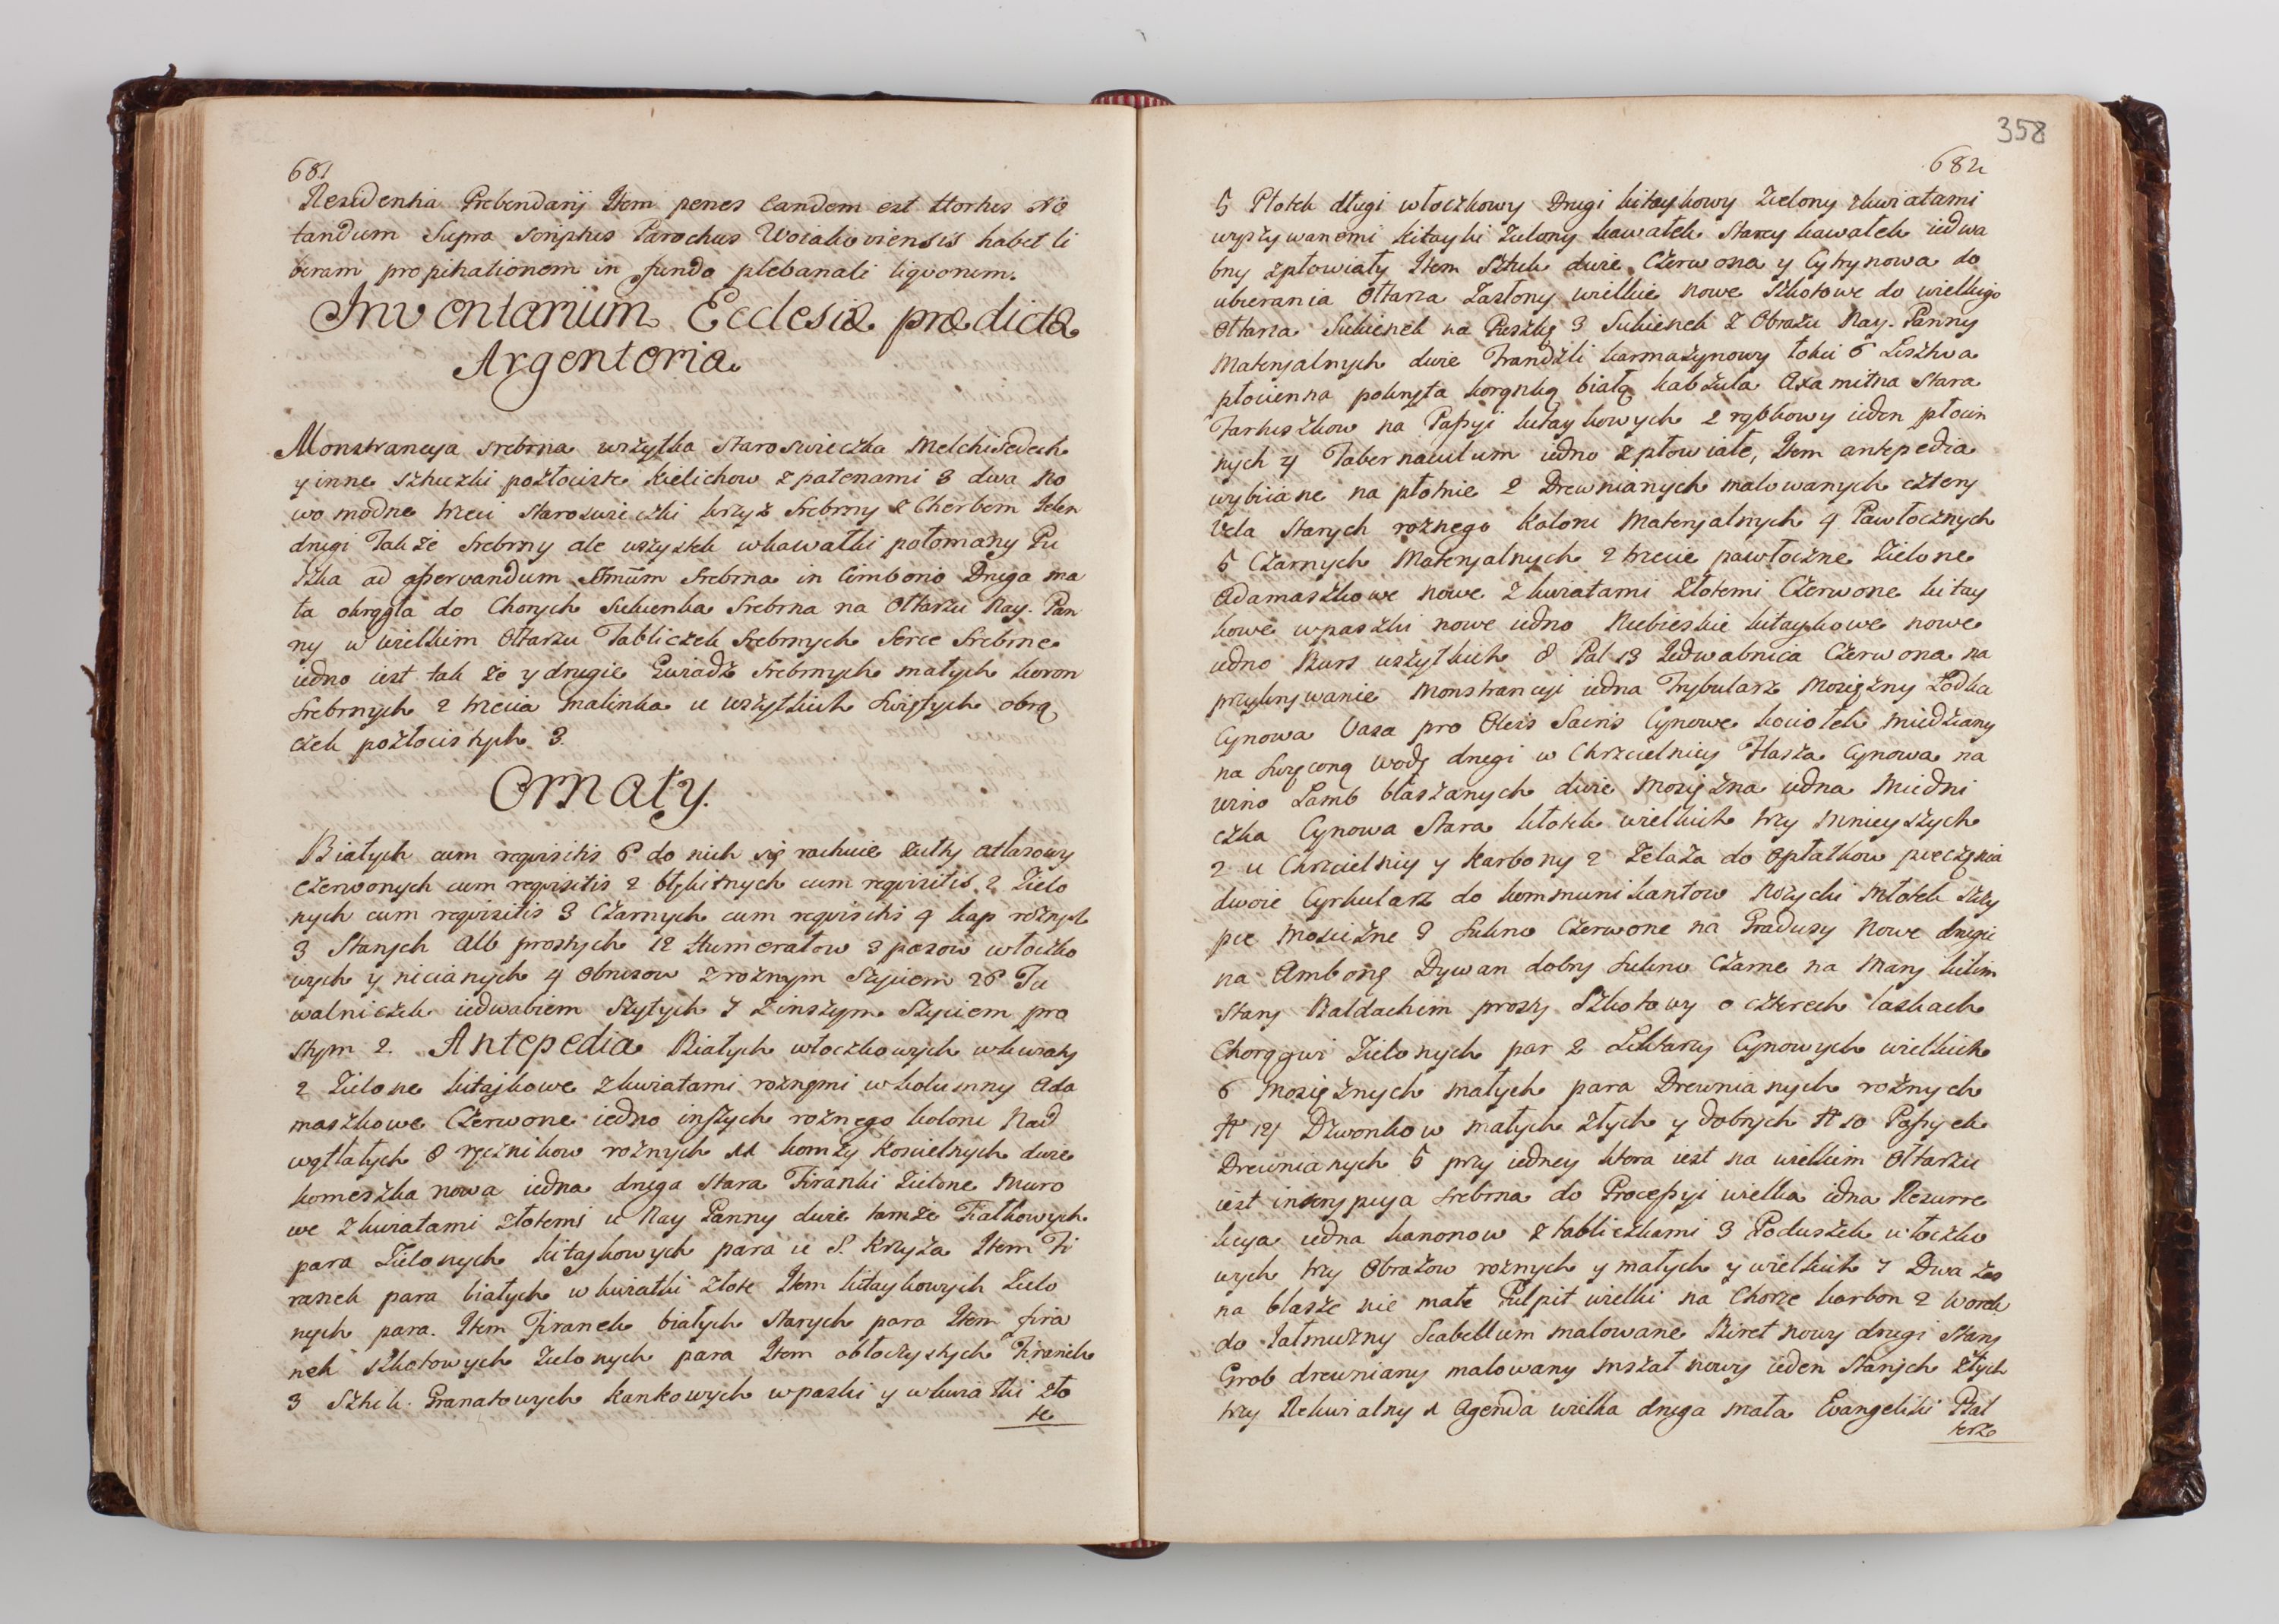 681
Residentia Prebendarij Item penes eandem est Hortus No
tandum Supra scriptus Parochus Woiakoviensis habet li
beram propinationem in fundo plebanali liquorum.
Inventarium Ecclesiæ prædictæ
Argentoria
Monstrancya srebrna wszytka staroswieczka Melchisedech
y inne sztuczki pozłociste Kielichow z patenami 3 dwa no
wo modne trzeci staroswieczki krzyż srebrny z Cherbem Jelen
drugi Także Srebrny ale wszystek w kawałki połomany Pu
szka ad asservandum SSmum Srebrna in Cimborio Druga ma
ła okrągła do Chorych Sukienka Srebrna na Ołtarzu Nay. Pan
ny w wielkim Ołtarzu Tabliczek Srebrnych Serce Srebrne
iedno iest tak że y drugie Gwiadz Srebrnych małych koron
Srebrnych 2 trzecia malinka u wszytkich Swiętych obrą
czek pozłocistych 3.
Ornaty.
Białych cum requisitis 6 do nich się rachuie żułty atłasowy
Czerwonych cum requisitis 2 błękitnych cum requisitis 2 Zielo
nych cum requisitis 3 Czarnych cum requisitis 4 kap rożnych
3 Starych Alb prostych 12 Humerałow 3 pasow włoczko
wych y nicianych 4 Obrusow z rożnym Szyciem 26 Tu
walniczek iedwabiem Szytych 7 z inszym Szyciem pro
stym 2. Antepedia Białych włoczkowych w kwiaty
2 Zielone kitajkowe z kwiatami rożnymi w kolumny Ada
maszkowe Czerwone iedno inszych rożnego koloru Nad
wątlałych 8 ręcznikow rożnych 11 komży Koscielnych dwie
komeszka nowa iedna druga Stara Firanki Zielone Muro
we z kwiatami złotemi u Nay Panny dwie tamże Fiałkowych
para Zielonych kitajkowych para u S. Krzyża Item Fi
ranek para białych w kwiatki złote Item kitaykowych Zielo
nych para. Item Firanek białych Starych para Item fira
nek szkotowych Zielonych para Item obłoczystych Firanek
3 Sztuk Granatowych kankowych w paski y w kwiatki zło
te
358
682
5 Płotek długi włoczkowy Drugi kitaykowy Zielony z kwiatami
wyszywanemi kitayki Zielony kawałek Stary kawałek iedwa
bny zpłowiały Item Sztuk dwie Czerwona y Cytrynowa do
ubierania Ołtarza Zasłony wielkie nowe Szkotowe do wielkigo
Ołtarza Sukienek na Puszkę 3 Sukienek z Obrazu Nay. Panny
Materyalnych dwie Frandzli karmazynowy łokci 6 Liszkwa
płocienna pokryta korąnką białą kabzula Axamitna Stara
Fartuszkow na Passyi kitaykowych 2 rąbkowy ieden płocin
nych 4 Tabernaculum iedno zpłowiałe, Item antepedia
wybiiane na płotnie 2 Drewnianych malowanych cztery
Vela Starych rożnego Koloru Materyalnych 4 Pawłocznych
5 Czarnych Materyalnych 2 trzecie pawłoczne Zielone
Adamaszkowe nowe z kwiatami Złotemi Czerwone kitay
kowe w paszki nowe iedno Niebieskie kitaykowe nowe
iedno Burs wszytkich 8 Pal 13 Jedwabnica Czerwona na
przykrywanie Monstrancyi iedna Trybularz Mosiężny Łodka
Cynowa Vasa pro Oleis Sacris Cynowe kociołek miedziany
na swięconą wodę drugi w Chrzcielnicy Flasza Cynowa na
wino Lamb błaszanych dwie Mosiężna iedna Miedni
czka Cynowa Stara kłotek wielkich trzy Mnieyszych
2 u Chrzcielnicy y Karbony 2 Zelaza do Opłatkow pieczęnia
dwoie Cyrkularz do kommunikantow Nożyczki Młotek Szczy
pce Mosiężne 3 Sukno Czerwone na Gradusy Nowe drugie
na Ambonę Dywan dobry Sukno Czarne na Mary kilim
Stary Baldachim prosty Szkotowy o czterech laskach
Chorągwi Zielonych par 2 Lichtarzy Cynowych wielkich
6 Mosiężnych małych para Drewnianych rożnych
N 12 Dzwonkow małych złych y dobrych N 10 Passyek
Drewnianych 5 przy iedney ktora iest na wielkim Ołtarzu
iest inskrypcya srebrna do Processyi wielka iedna Rezurre
kcya iedna kanonow z tabliczkami 3 Poduszek włoczko
wych trzy Obrazow rożnych y małych y wielkich 7 Dwa zas
na blasze nie małe Pulpit wielki na Chorze karbon 2 worek
do Jałmużny Scabellum malowane Biret nowy drugi Stary
Grob drewniany malowany Mszał nowy ieden Starych złych
trzy Rekwialny 1 Agenda wielka druga mała Evangeliki Psał
terze